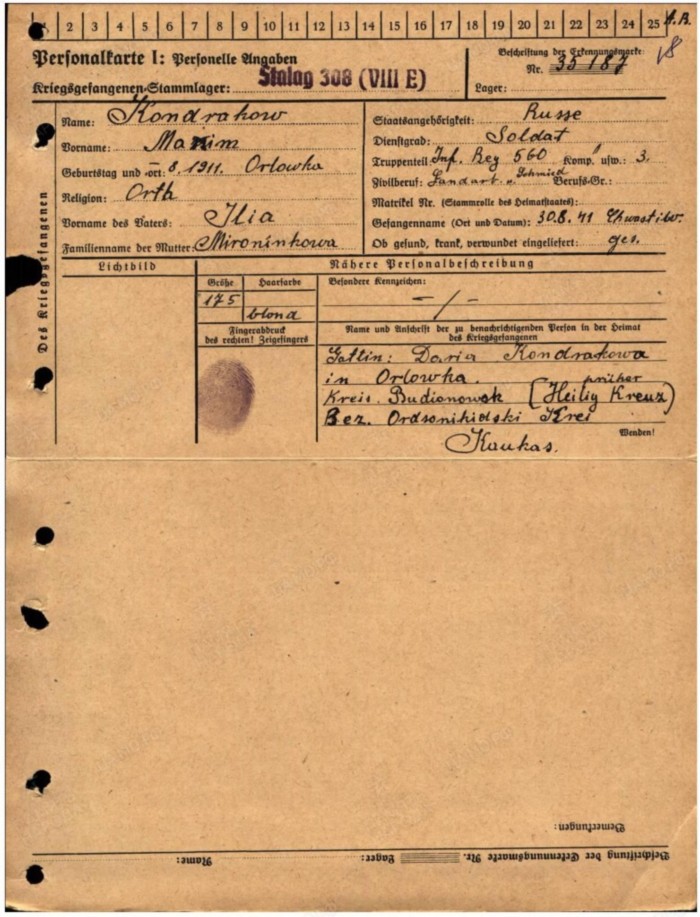 1 2 3 4 5 6 7 8 9 10 11 12 13 14 15 16 17 18 19 20 21 22 23 24 25
Personalkarte I: Personelle Angaben
Kriegsgefangenen-Stammlager: Stalag 308 (VIII E)
Beschriftung der Erkennungsmarke
Nr. 35187
Lager:
Des Kriegsgefangenen
Name: Kondrakow
Vorname: Maxim
Geburtstag und -ort: 8. 1911. Orlowka
Religion: Orth
Vorname des Vaters: Ilia
Familienname der Mutter: Mironinkowa
Staatsangehörigkeit: Russe
Dienstgrad: Soldat
Truppenteil: Inf. Reg 560 Komp. usw.: 3.
Zivilberuf: Landarb. u. Schmied Berufs-Gr.:
Matrikel Nr. (Stammrolle des Heimatstaates):
Gefangenname (Ort und Datum): 30.8.41
Ob gesund, krank, verwundet eingeliefert: ges.
Lichtbild
Nähere Personalbeschreibung
Größe
Haarfarbe
Besondere Kennzeichen:
175
blond
– / –
Fingerabdruck
des rechten! Zeigefingers
Name und Anschrift der zu benachrichtigenden Person in der Heimat
des Kriegsgefangenen
Gattin: Daria Kondrakowa
in Orlowka. früher
Kreis. Budionowsk (Heilig Kreuz)
Bez. Ordsonikidski Krei
Kaukas.
Wenden!
Bemerkungen:
Beschriftung der Erkennungsmarke Nr. Lager: Name: